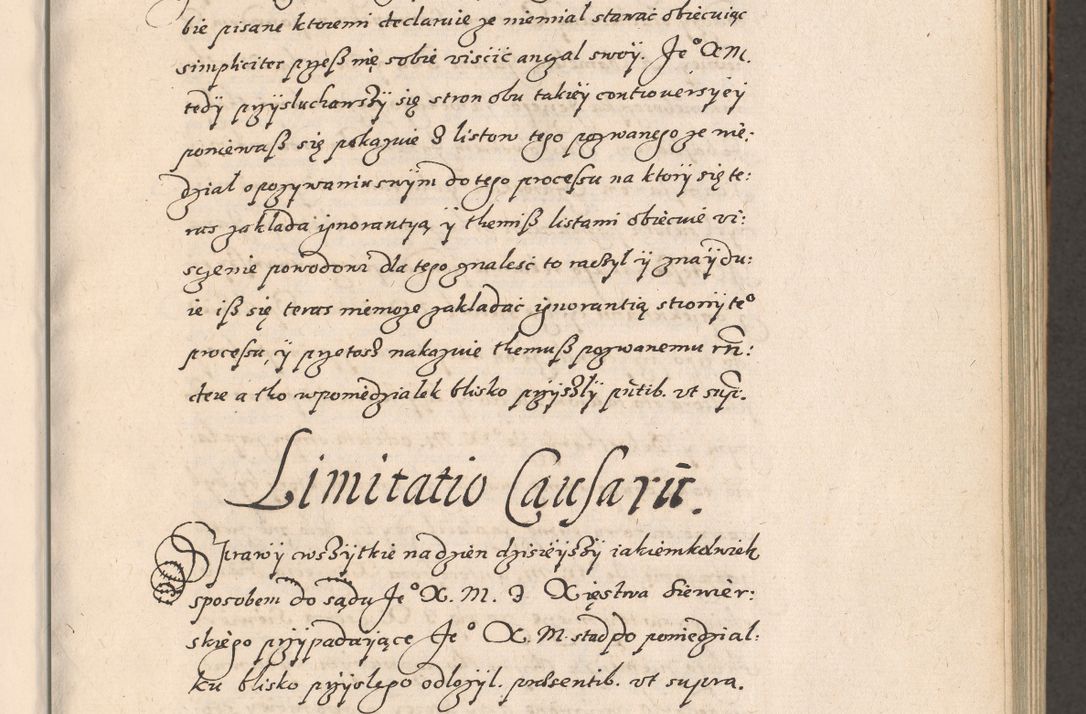 bie pisane ktoremi declaruie że niemial stawać obiecuiąc
simpliciter przeß nię sobie viścić angal swoÿ. Je° X M.
tedÿ przÿsluchawszÿ się stron obu takieÿ controversÿeÿ
poniewaß się pokazuie z listow tego pozwanego że nie:
dzial o pozÿwaniu swÿm do tego processu na ktorÿ się te:
ras zaklada ignorantÿą ÿ themiß listami obiecuie vi:
sczenie powodowi dla tego znaleść to raczÿl ÿ znaÿdu:
ie iß się teras niemoże zakladać ignorantią stronÿ te°
processu, ÿ przetosz nakazuie themuß pozwanemu rñ:
dere a tho wponiedzialek blisko przÿszlÿ pñtib. vt supr.
Limitatio Causarū.
Sprawÿ wszÿtkie nadzien dzisieÿszÿ iakiemkolwiek
sposobem do sądu Je° X. M. z Xięstwa Siewier:
skiego przÿpadaiące Je° X. M. stad do poniedzial:
ku blisko przÿslego odlożÿl. præsentib. vt supra.